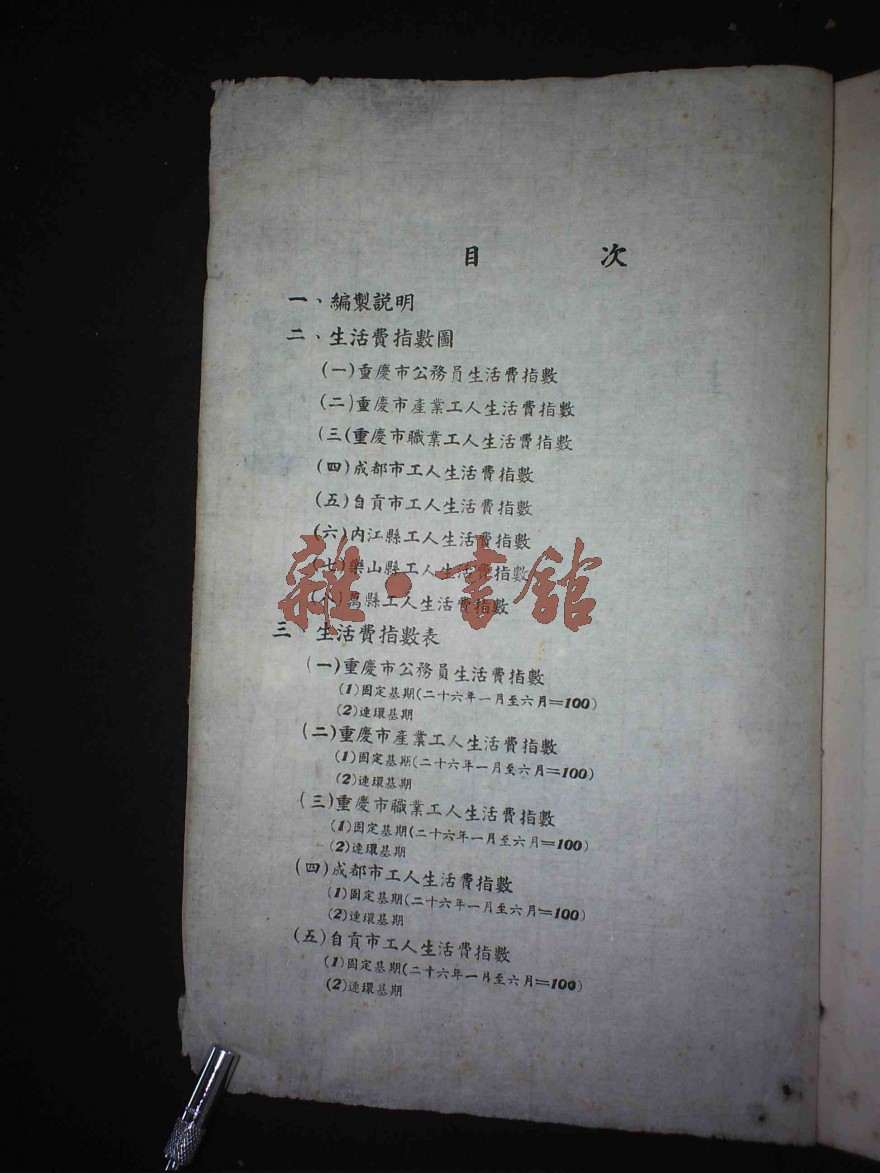 目 次
一、編製説明
二、生活費指數圖
(一)重慶市公務員生活費指數
(二)重慶市產業工人生活費指數
(三(重慶市職業工人生活費指數
(四)成都市工人生活費指數
(五)自貢市工人生活費指數
(六)內江縣工人生活費指數
(七)樂山縣工人生活費指數
(八)萬縣工人生活費指數
雜·書館
三、生活費指數表
(一)重慶市公務員生活費指數
(1)固定基期(二十六年一月至六月=100)
(2)連環基期
(二)重慶市產業工人生活費指數
(1)固定基期(二十六年一月至六月=100)
(2)連環基期
(三)重慶市職業工人生活費指數
(1)固定基期(二十六年一月至六月=100)
(2)連環基期
(四)成都市工人生活費指數
(1)固定基期(二十六年一月至六月=100)
(2)連環基期
(五)自貢市工人生活費指數
(1)固定基期(二十六年一月至六月=100)
(2)連環基期